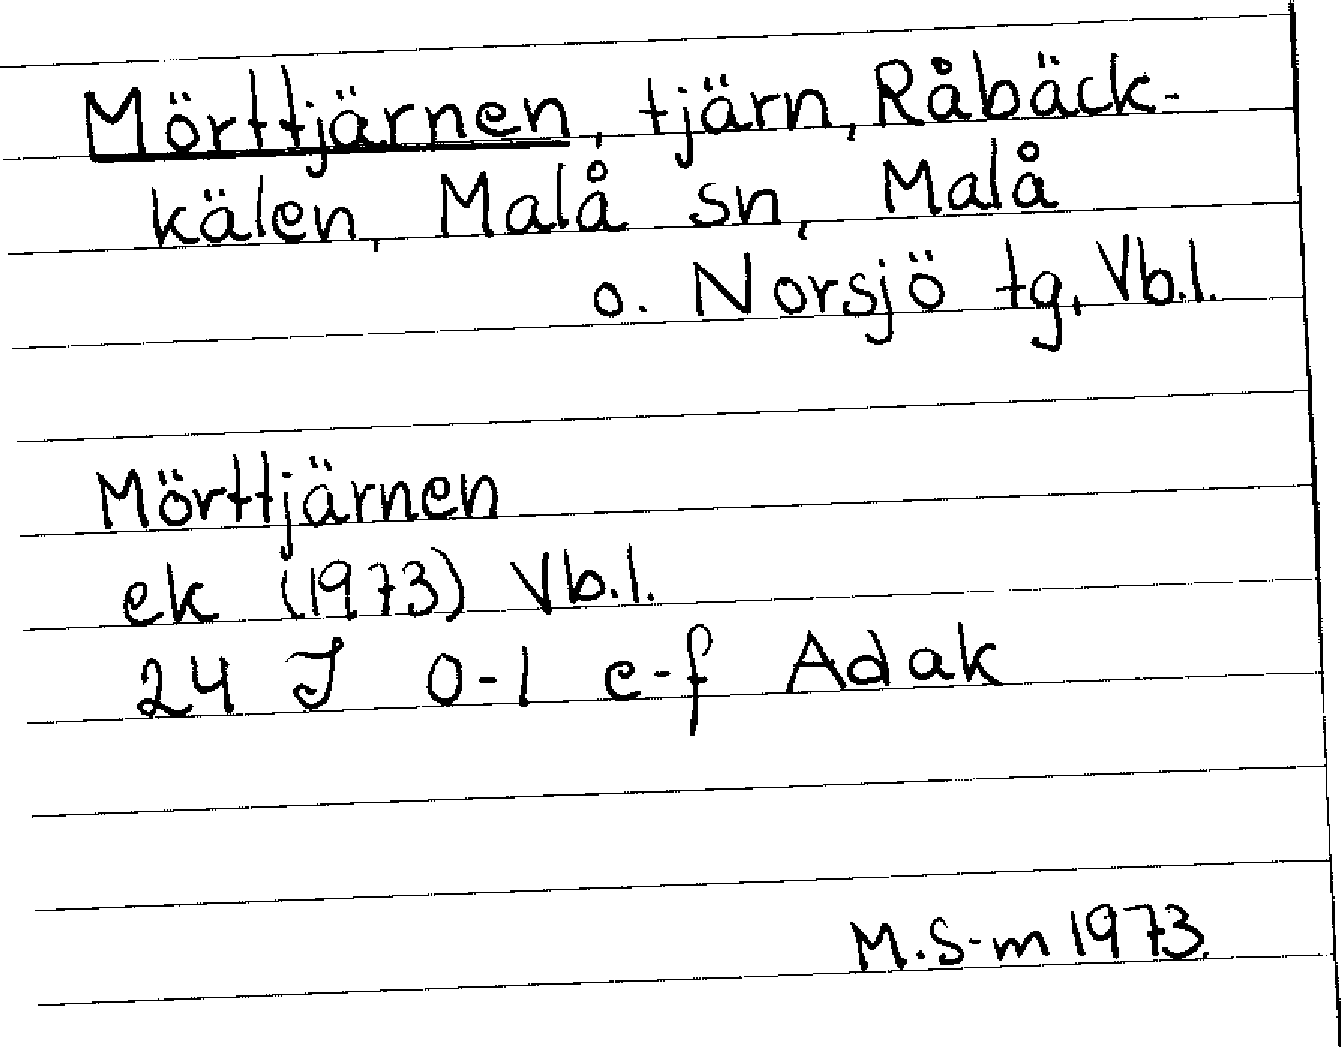 Mörttjärnen, tjärn, Råbäck-
kälen, Malå sn, Malå
o. Norsjö tg, Vb.l.
Mörttjärnen
ek (1973) Vb.l.
24 J 0-1 e-f Adak
M.S-m 1973.